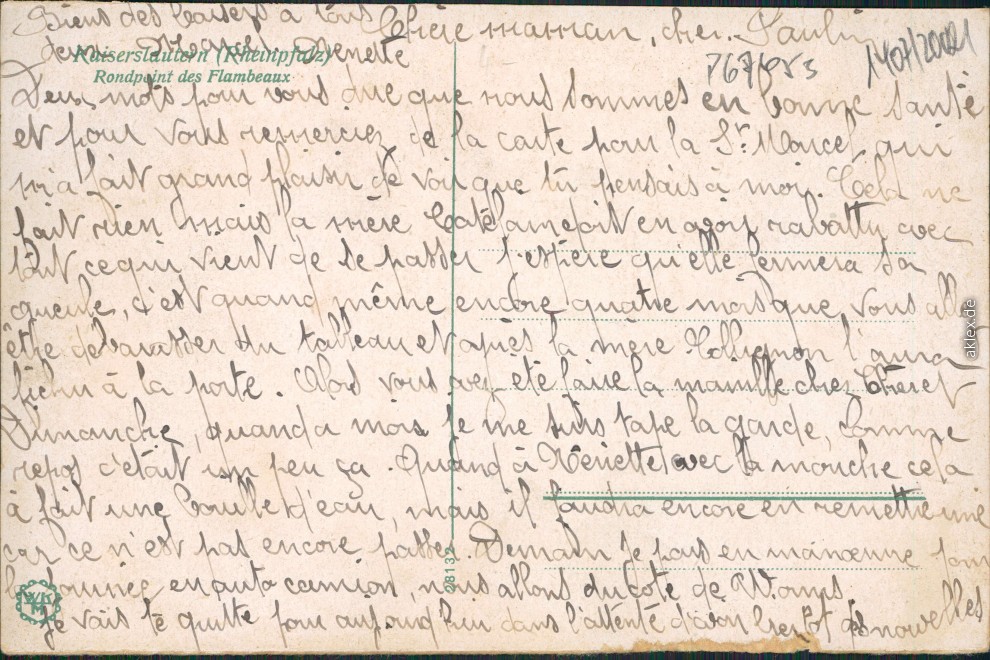 Biens des baisers à tous
Chère maman, cher Paulin
Kaiserslautern (Rheinpfalz)
Rondpoint des Flambeaux
P67653
Deux mots pour vous dire que nous sommes en bonne santé
et pour vous remercier de la carte pour la St. Marcel qui
m'a fait grand plaisir de voir que tu pensais à moi. Cela ne
fait rien mais la mère en avoir rabattu avec
tout ce qui vient de se passer j'espère qu'elle fermera sa
gueule, c'est quand même encore quatre mois que vous
être débarasser du tableau et après la mère Collignon l'aura
fichu à la porte. Alors vous avez été faire la chez
Dimanche, quand à moi je me suis tapé la garde, comme
repos c'était un peu ça. Quand à Nénette avec la mouche cela
à fait une d'eau, mais il faudra encore en remettre une
car ce n'est pas encore passer. Demain je pars en manœuvre pour
la journée en auto camion, nous allons du côté de Worms.
Je vais te quitte pour aujourd'hui dans l'attente d'avoir bientôt des nouvelles
28132
WK
M
aklex.de